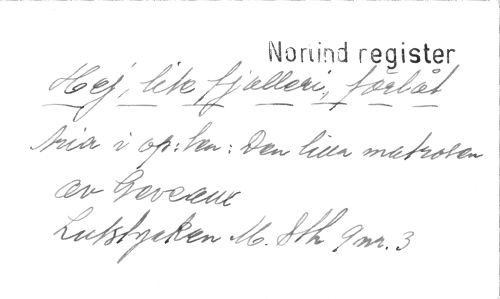 Norlind register
Hej, lite fjolleri, förlåt
Aria i op:ten: Den lilla matrosen
av Gaveaux
Lutstycken M. Sth 9 nr. 3